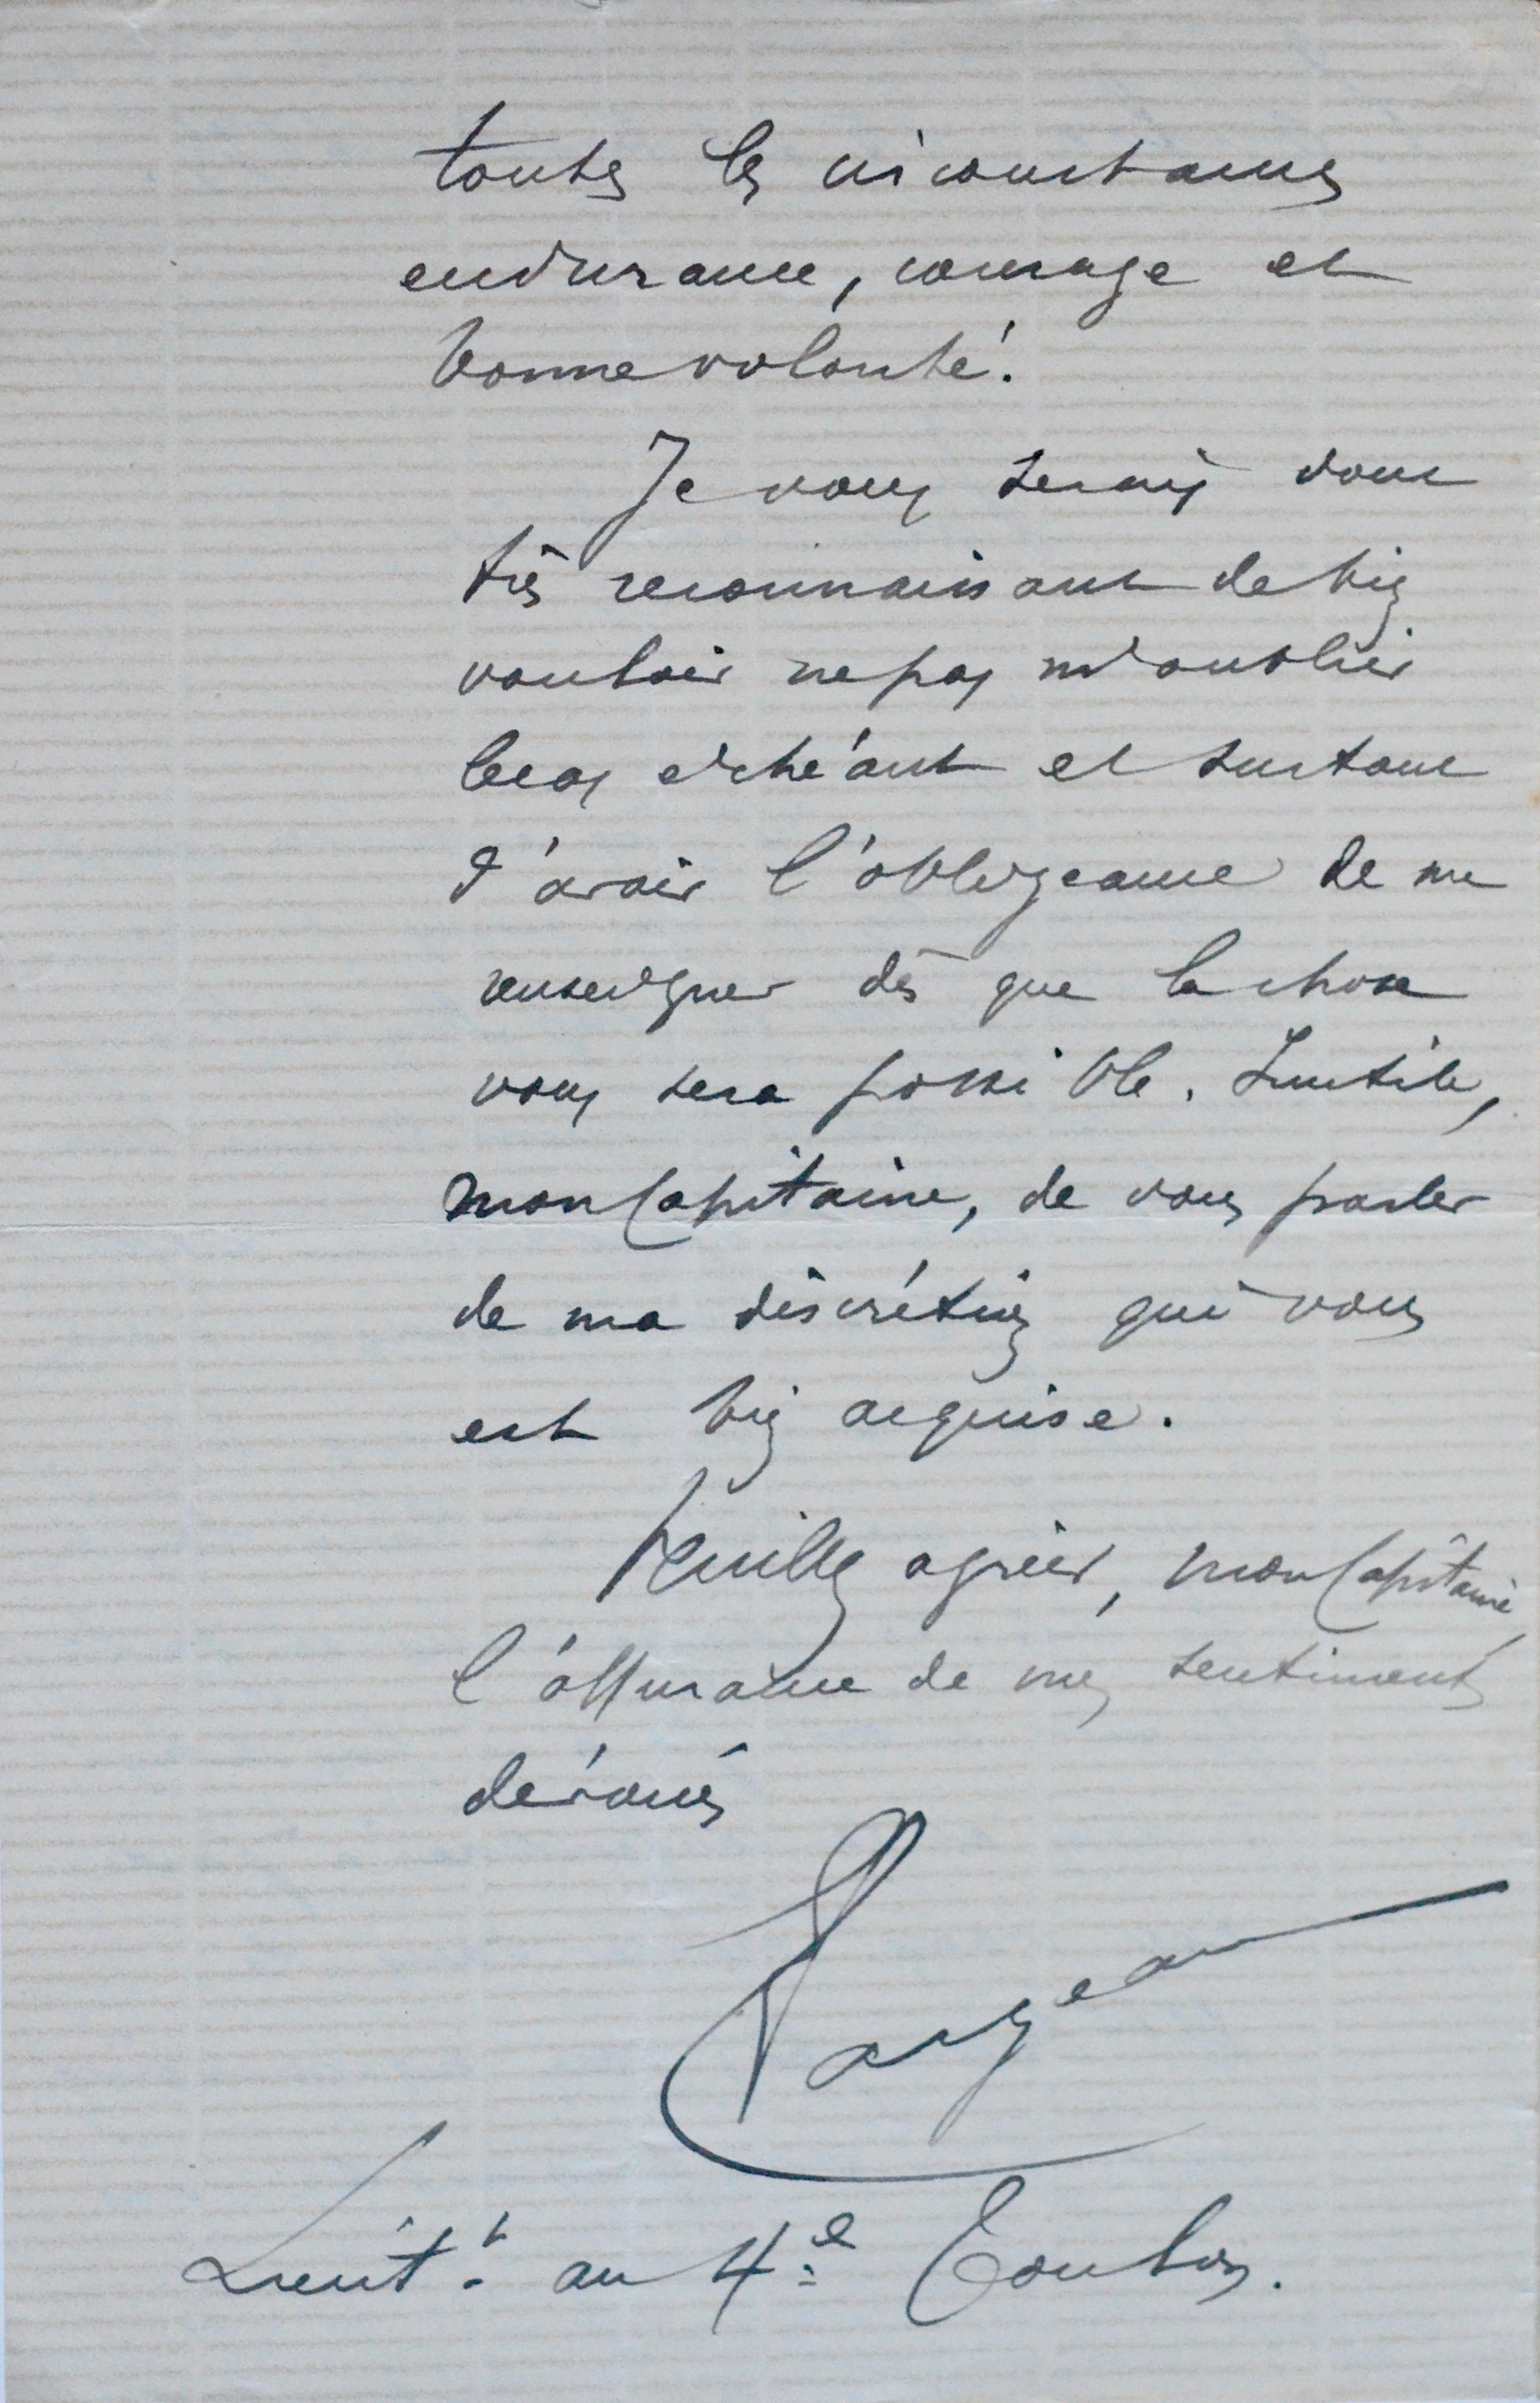 toutes les circonstances
endurance, courage et
bonne volonté.
Je vous serais donc
très reconnaissant de bien
vouloir ne pas m'oublier
le cas échéant et surtout
d'avoir l'obligeance de me
renseigner dès que la chose
vous sera possible. Inutile,
mon Capitaine, de vous parler
de ma discrétion qui vous
est bien acquise.
Veuillez agréer, mon Capitaine,
l'assurance de mes sentiments
dévoués
Lieut.t au 4.e Toulon.